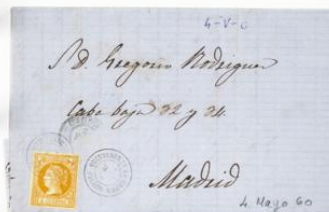 4-V-
S. D. Gregorio Rodriguez
Caba baja 32 y 34.
Madrid
4 Mayo 60